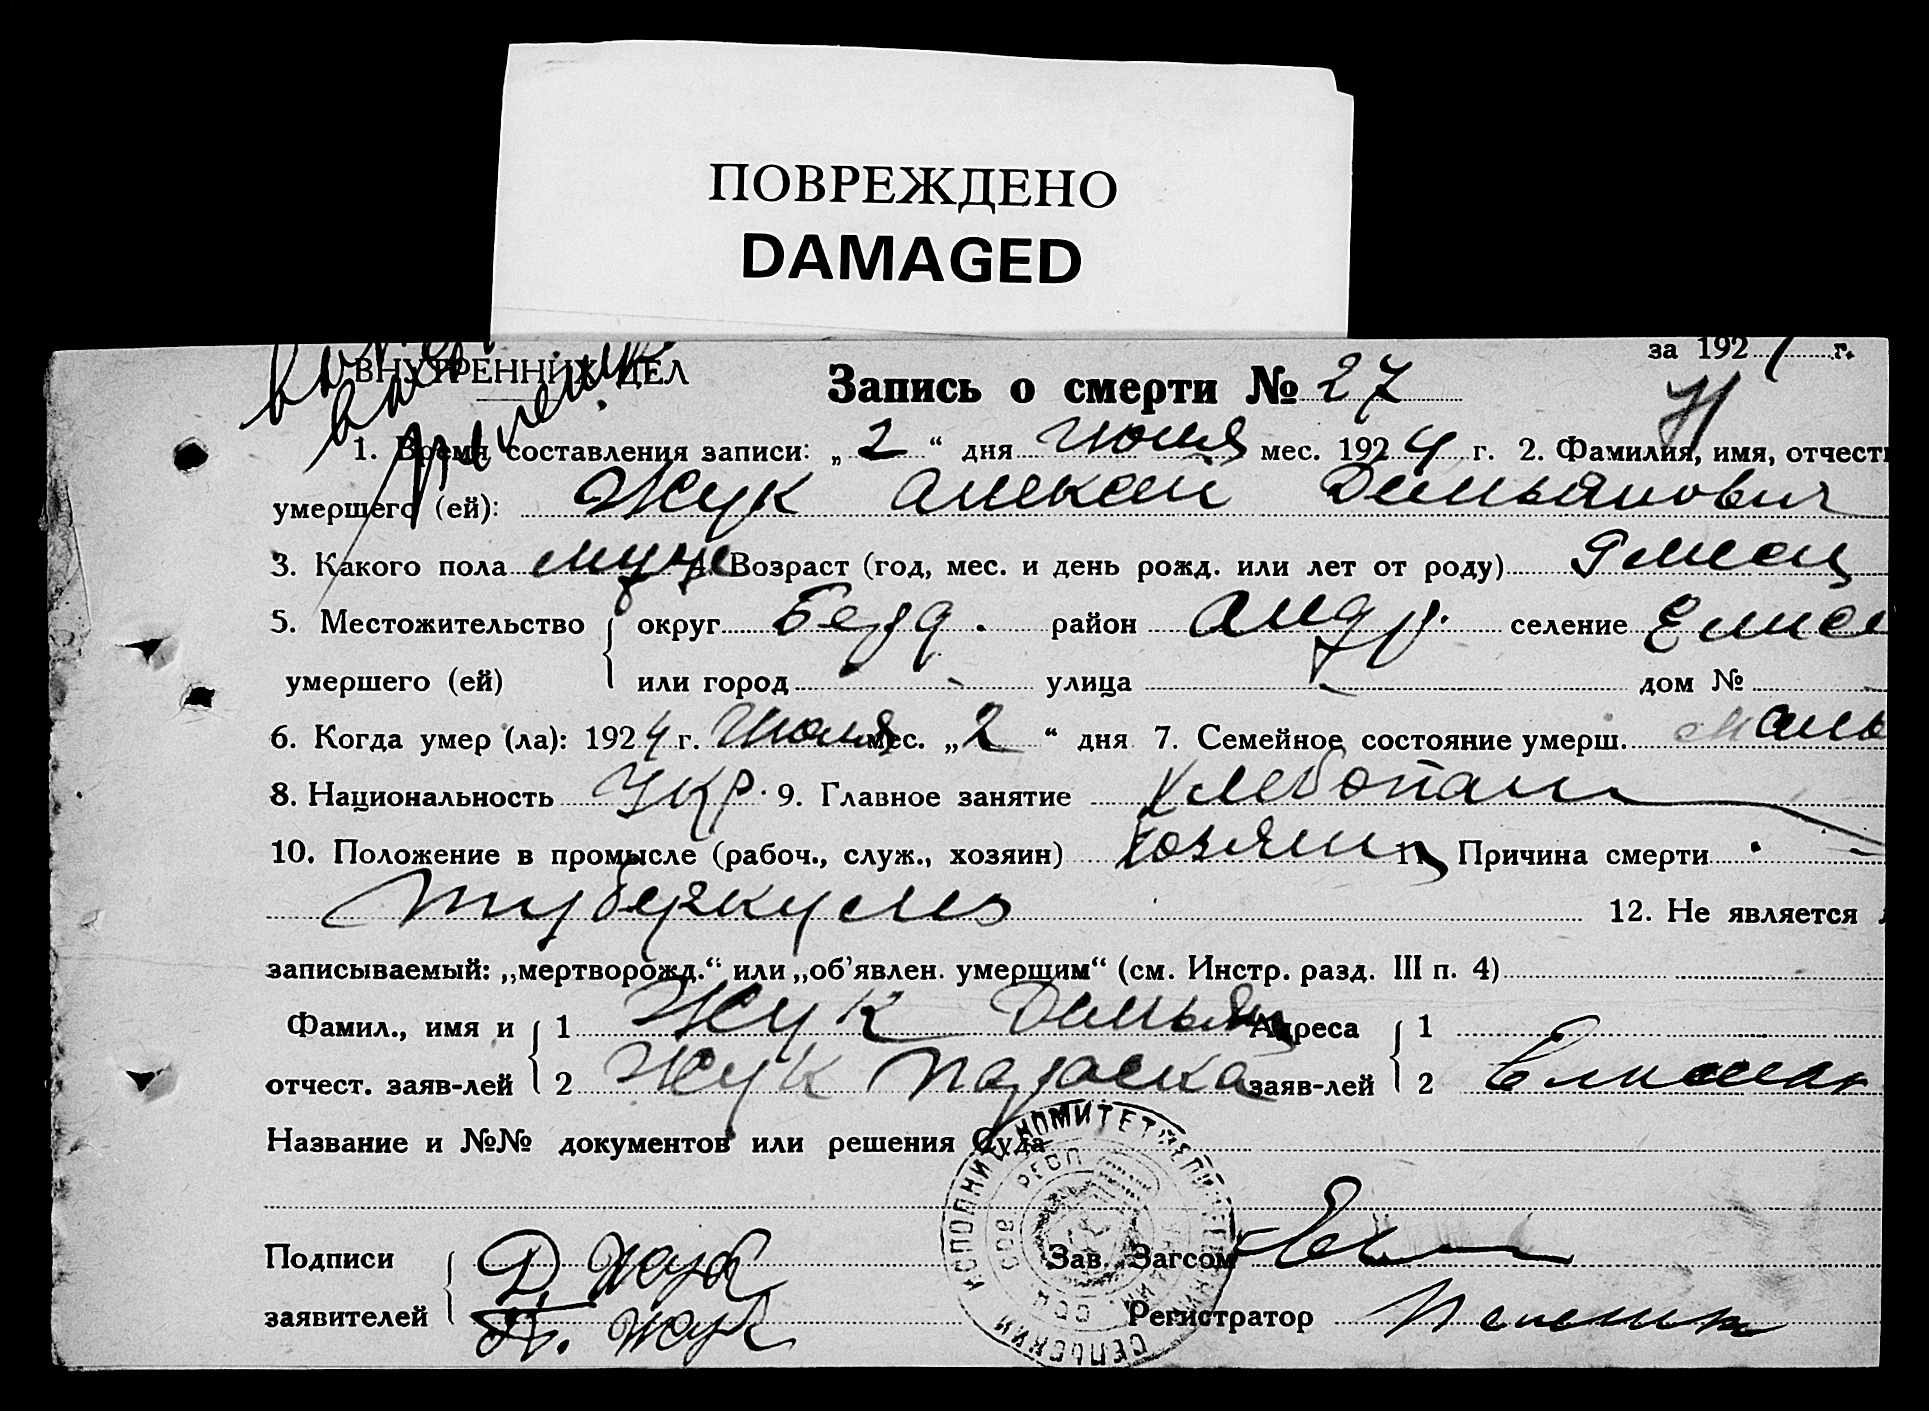 ПОВРЕЖДЕНО
DAMAGED
ВНУТРЕННИХ ДЕЛ
за 192 г.
Запись о смерти № 27
1. Время составления записи: „2“ дня июля мес. 1924 г. 2. Фамилия, имя, отчест
умершего (ей): Жук Алексей Демьянович
3. Какого пола муж 4. Возраст (год, мес. и день рожд. или лет от роду) 9 месяц
5. Местожительство округ Берд. район Андр. селение Елисе
умершего (ей) или город улица дом №
6. Когда умер (ла): 1924 г. Июля мес. „2“ дня 7. Семейное состояние умерш.
8. Национальность Укр. 9. Главное занятие хлебопаш
10. Положение в промысле (рабоч., служ., хозяин) хозяин 11. Причина смерти
туберкулез 12. Не является
записываемый: „мертворожд.“ или „об’явлен. умершим“ (см. Инстр. разд. III п. 4)
Фамил., имя и 1 Жук Демьян Адреса 1
отчест. заяв-лей 2 Жук Параска заяв-лей 2
Название и №№ документов или решения Суда
Подписи Д. Жук Зав. Загсом
заявителей П. Жук Регистратор
ИСПОЛНИТ КОМИТЕТ
СЕЛЬСКИЙ